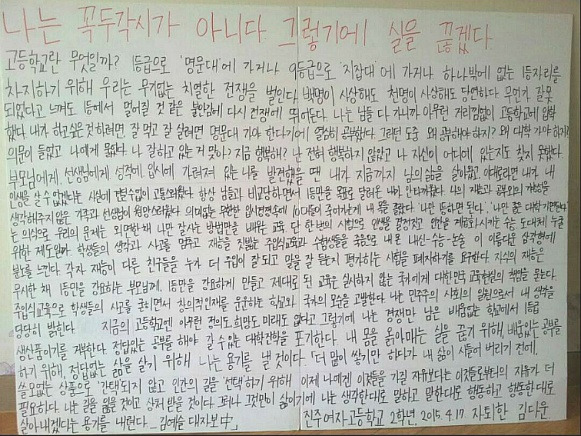 나는 꼭두각시가 아니다 그렇기에 실을 끊겠다
고등학교란 무엇일까? 1등급으로 '명문대'에 가거나 9등급으로 '지잡대'에 가거나 하나밖에 없는 1등자리를
차지하기 위해 우리는 무기없는 치열한 전쟁을 벌인다. 백명이 시상해도 천명이 시상해도 당연하다. 무언가 잘못
되었다고 느껴도 1등에서 멀어질 것 같은 불안감에 다시 전쟁에 뛰어든다. 나는 남들 다 가니까 아무런 거리낌없이 고등학교에 입학
했다. 내가 하고싶은 것 하려면, 잘 먹고 잘 살려면 명문대 가야 한다기에 열심히 공부했다. 그러던 도중 왜 공부해야 하지? 왜 대학 가야 하지?
의문이 들었고 나에게 물었다. 나 잘하고 있는 거 맞아? 지금 행복해? 난 전혀 행복하지 않았고 나 자신이 어디에 있는지도 찾지 못했다.
부모님에게 선생님에게 성적에 입시에 가려져 없는 나를 발견했을 땐 내가 지금까지 남의 삶을 살아왔고, 이대로라면 내가 내
인생을 살 수 없겠다는 사실에 고통스러웠다. 항상 남들과 비교당하면서 1등만을 목표로 달려온 내가 안타까웠다. 나의 재능과 교육의 개성을
생각해주지 않은 가족과 선생님이 원망스러웠다. 의미없는 무한한 입시경쟁속에 10대들이 죽어나는게 내 목을 졸랐다. '나만 뜻하면 된다', '나만 좋은 대학 가면 된다'
는 의식으로 우리의 문제를 외면한 채 나만 잘사는 방법만을 배우는 교육 단 한 번의 시험으로 인생을 결정짓고 인간을 계급화시키는 수능 도대체 누굴
위한 제도일까. 학생들의 생각과 사고를 멈추고 재능을 짓밟는 주입식교육과 수험생들을 죽음으로 내 몬 내신-수능-논술 이 아름다운 삼각형에
분노를 느낀다. 각자 재능이 다른 친구들을 누가 더 주입이 잘 되고 말을 잘 듣는지 평가하는 시험을 폐지하기를 요구한다. 지식의 재능은
무시한 채 1등만을 강요하는 부모님께, 등만을 강요하게 만들고 제대로 된 교육은 실시하지 않는 국가에게 대한민국 교육현실의 책임을 묻는다.
주입식교육으로 학생들의 사고를 굳히면서 창의적인재를 운운하는 학교와 국가의 모순을 고발한다. 나는 민주주의 사회의 일원으로서 내 생각을
당당히 밝힌다. 지금의 고등학교엔 아무런 정의도, 희망도 미래도 없다고 그렇기에 나는 경쟁만 남은 배움없는 학교에서 등급
생산품이기를 거부한다. 정답있는 공부를 해야 갈 수 있는 대학진학을 포기한다. 내 몸을 옭아매는 실을 끊기 위해, 배움있는 공부를
하기 위해, 정답없는 삶을 살기 위해 나는 용기를 낼 것이다. "더 많이 쌓기만 하다가 내 삶이 시들어 버리기 전에.
쓸모있는 상품으로 '간택'되지 않고 인간의 길을 '선택'하기 위해. 이제 나에겐 이것들을 가질 자유보다는 이것들로부터의 자유가 더
필요하다. 나는 길을 잃을 것이고 상처 받을 것이다. 그러나 그것만이 삶이기에 나는 생각한대로 말하고 말한대로 행동하고 행동한대로
살아내겠다는 용기를 내련다. _김예슬 대자보 中"
진주여자고등학교 2학년. 2015. 4. 17 자퇴한 김다운